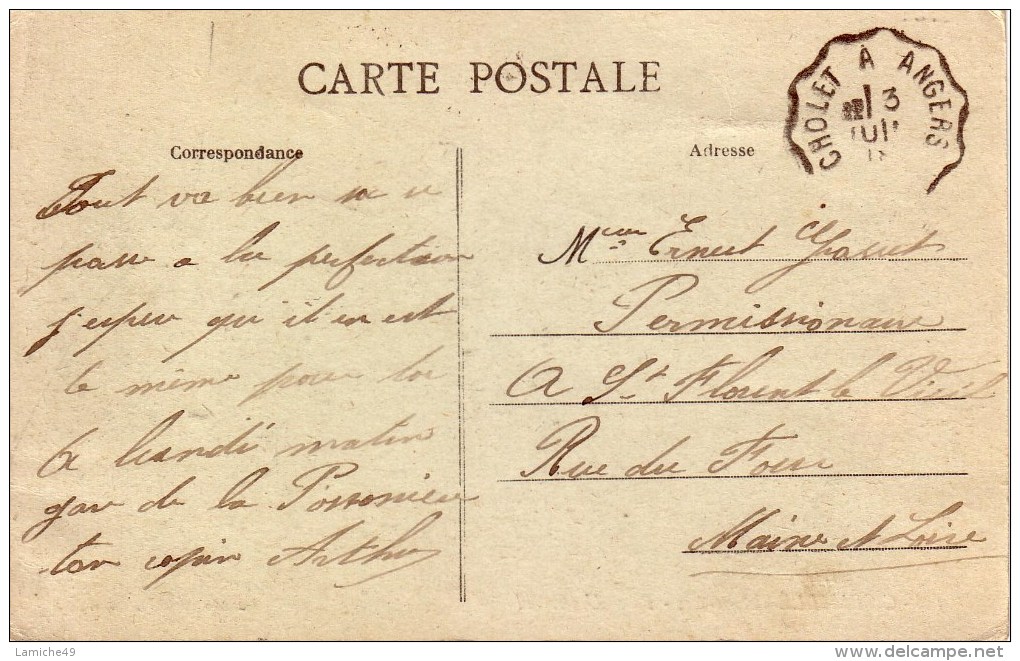 CARTE POSTALE
CHOLET À ANGERS
3
JUIL
Correspondance
Adresse
Tout va bien
passe a la perfection
j'espere qu'il en est
le même pour toi
A lundi matin
gare de la Possonniere
ton copin Arthur
Ernest
Permissionnaire
A St Florent le Vieil
Rue du Four
Maine et Loire
Lamiche49
delcampe.net